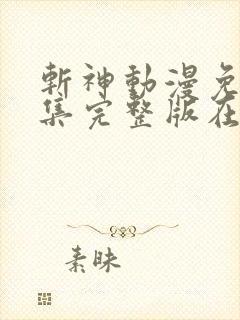 斬神動漫免
集完整版在
素昧